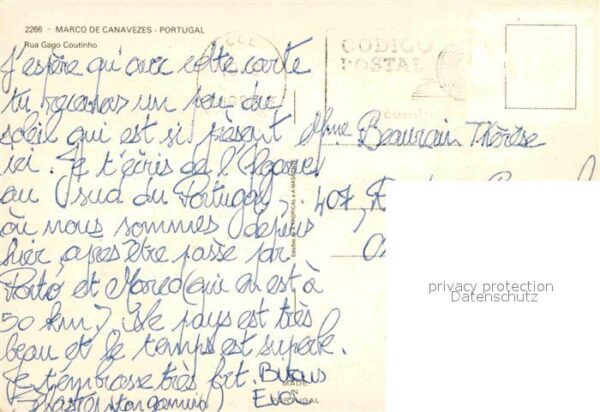 2266 - MARCO DE CANAVEZES - PORTUGAL
Rua Gago Coutinho
J'espère qu'avec cette carte
tu recevras un peu du
soleil qui est si présent
ici. Je t'écris de l'Algarve
au sud du Portugal,
où nous sommes depuis
hier, après être passé par
Porto et Marco (qui en est à
50 km). Le pays est très
beau et le temps est superbe.
Je t'embrasse très fort. Bisous
Eva
CODIGO
POSTAL
Mme Beaurain Thérèse
407,
privacy protection
Datenschutz
MADE
IN
PORTUGAL